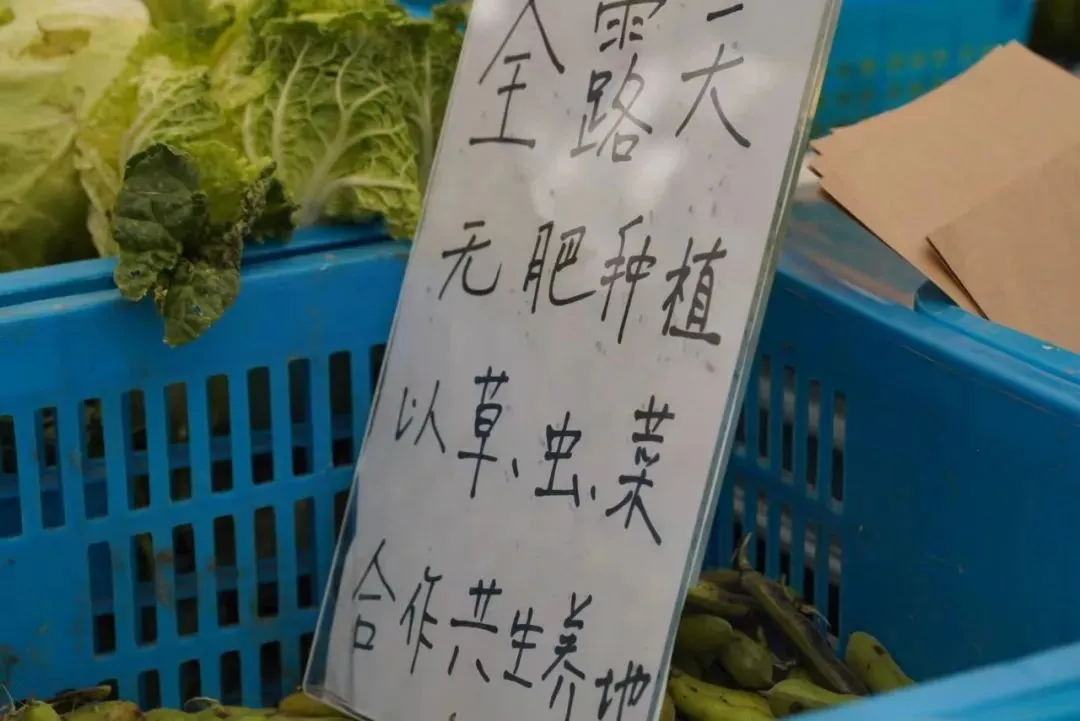 全露天
无肥种植
以草、虫、菜
合作共生养地